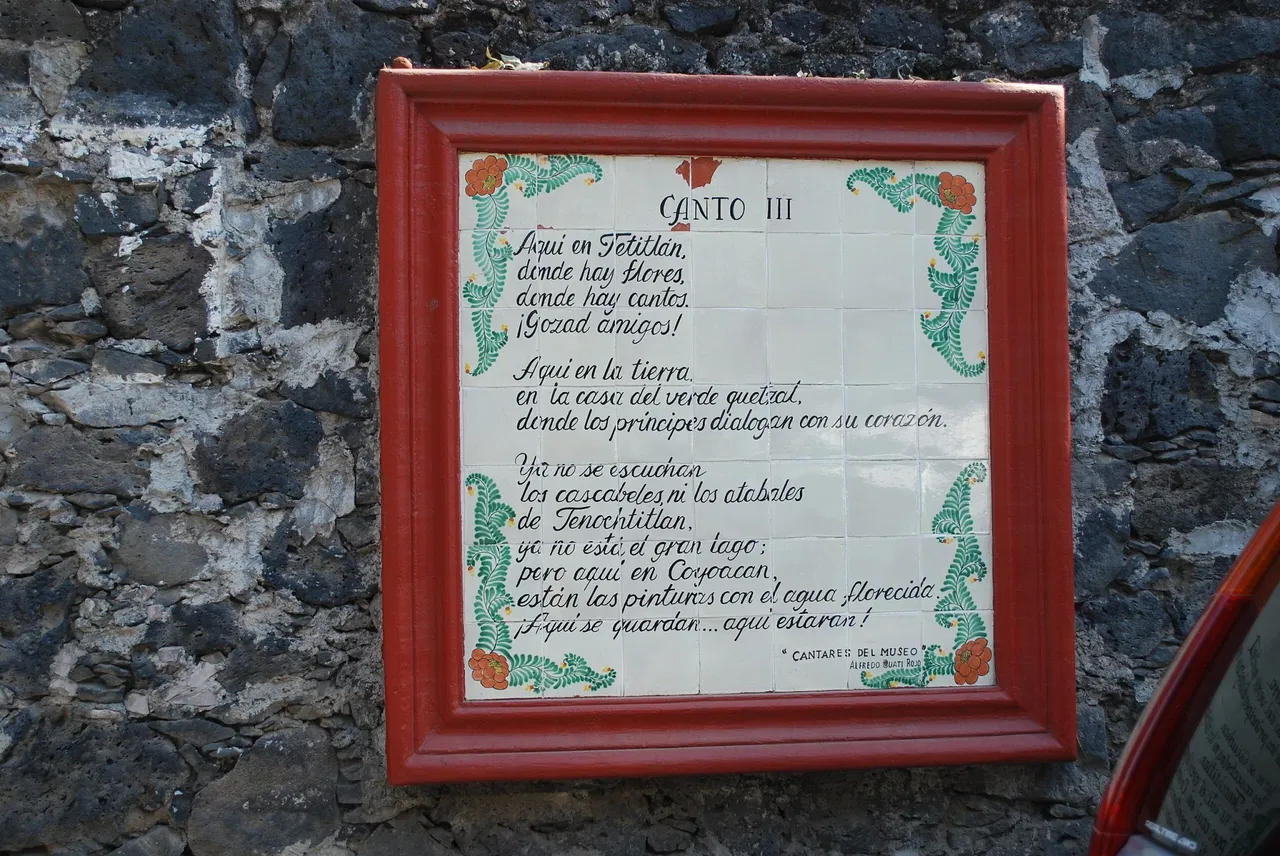 CANTO III
Aquí en Tetitlán,
donde hay flores,
donde hay cantos.
¡Gozad amigos!
Aquí en la tierra,
en la casa del verde quetzal,
donde los príncipes dialogan con su corazón.
Ya no se escuchan
los cascabeles ni los atabales
de Tenochtitlan,
ya no está el gran lago;
pero aquí en Coyoacan,
están las pinturas con el agua florecida.
¡Aquí se guardan... aquí estarán!
" CANTARES DEL MUSEO
ALFREDO GUATI ROJO